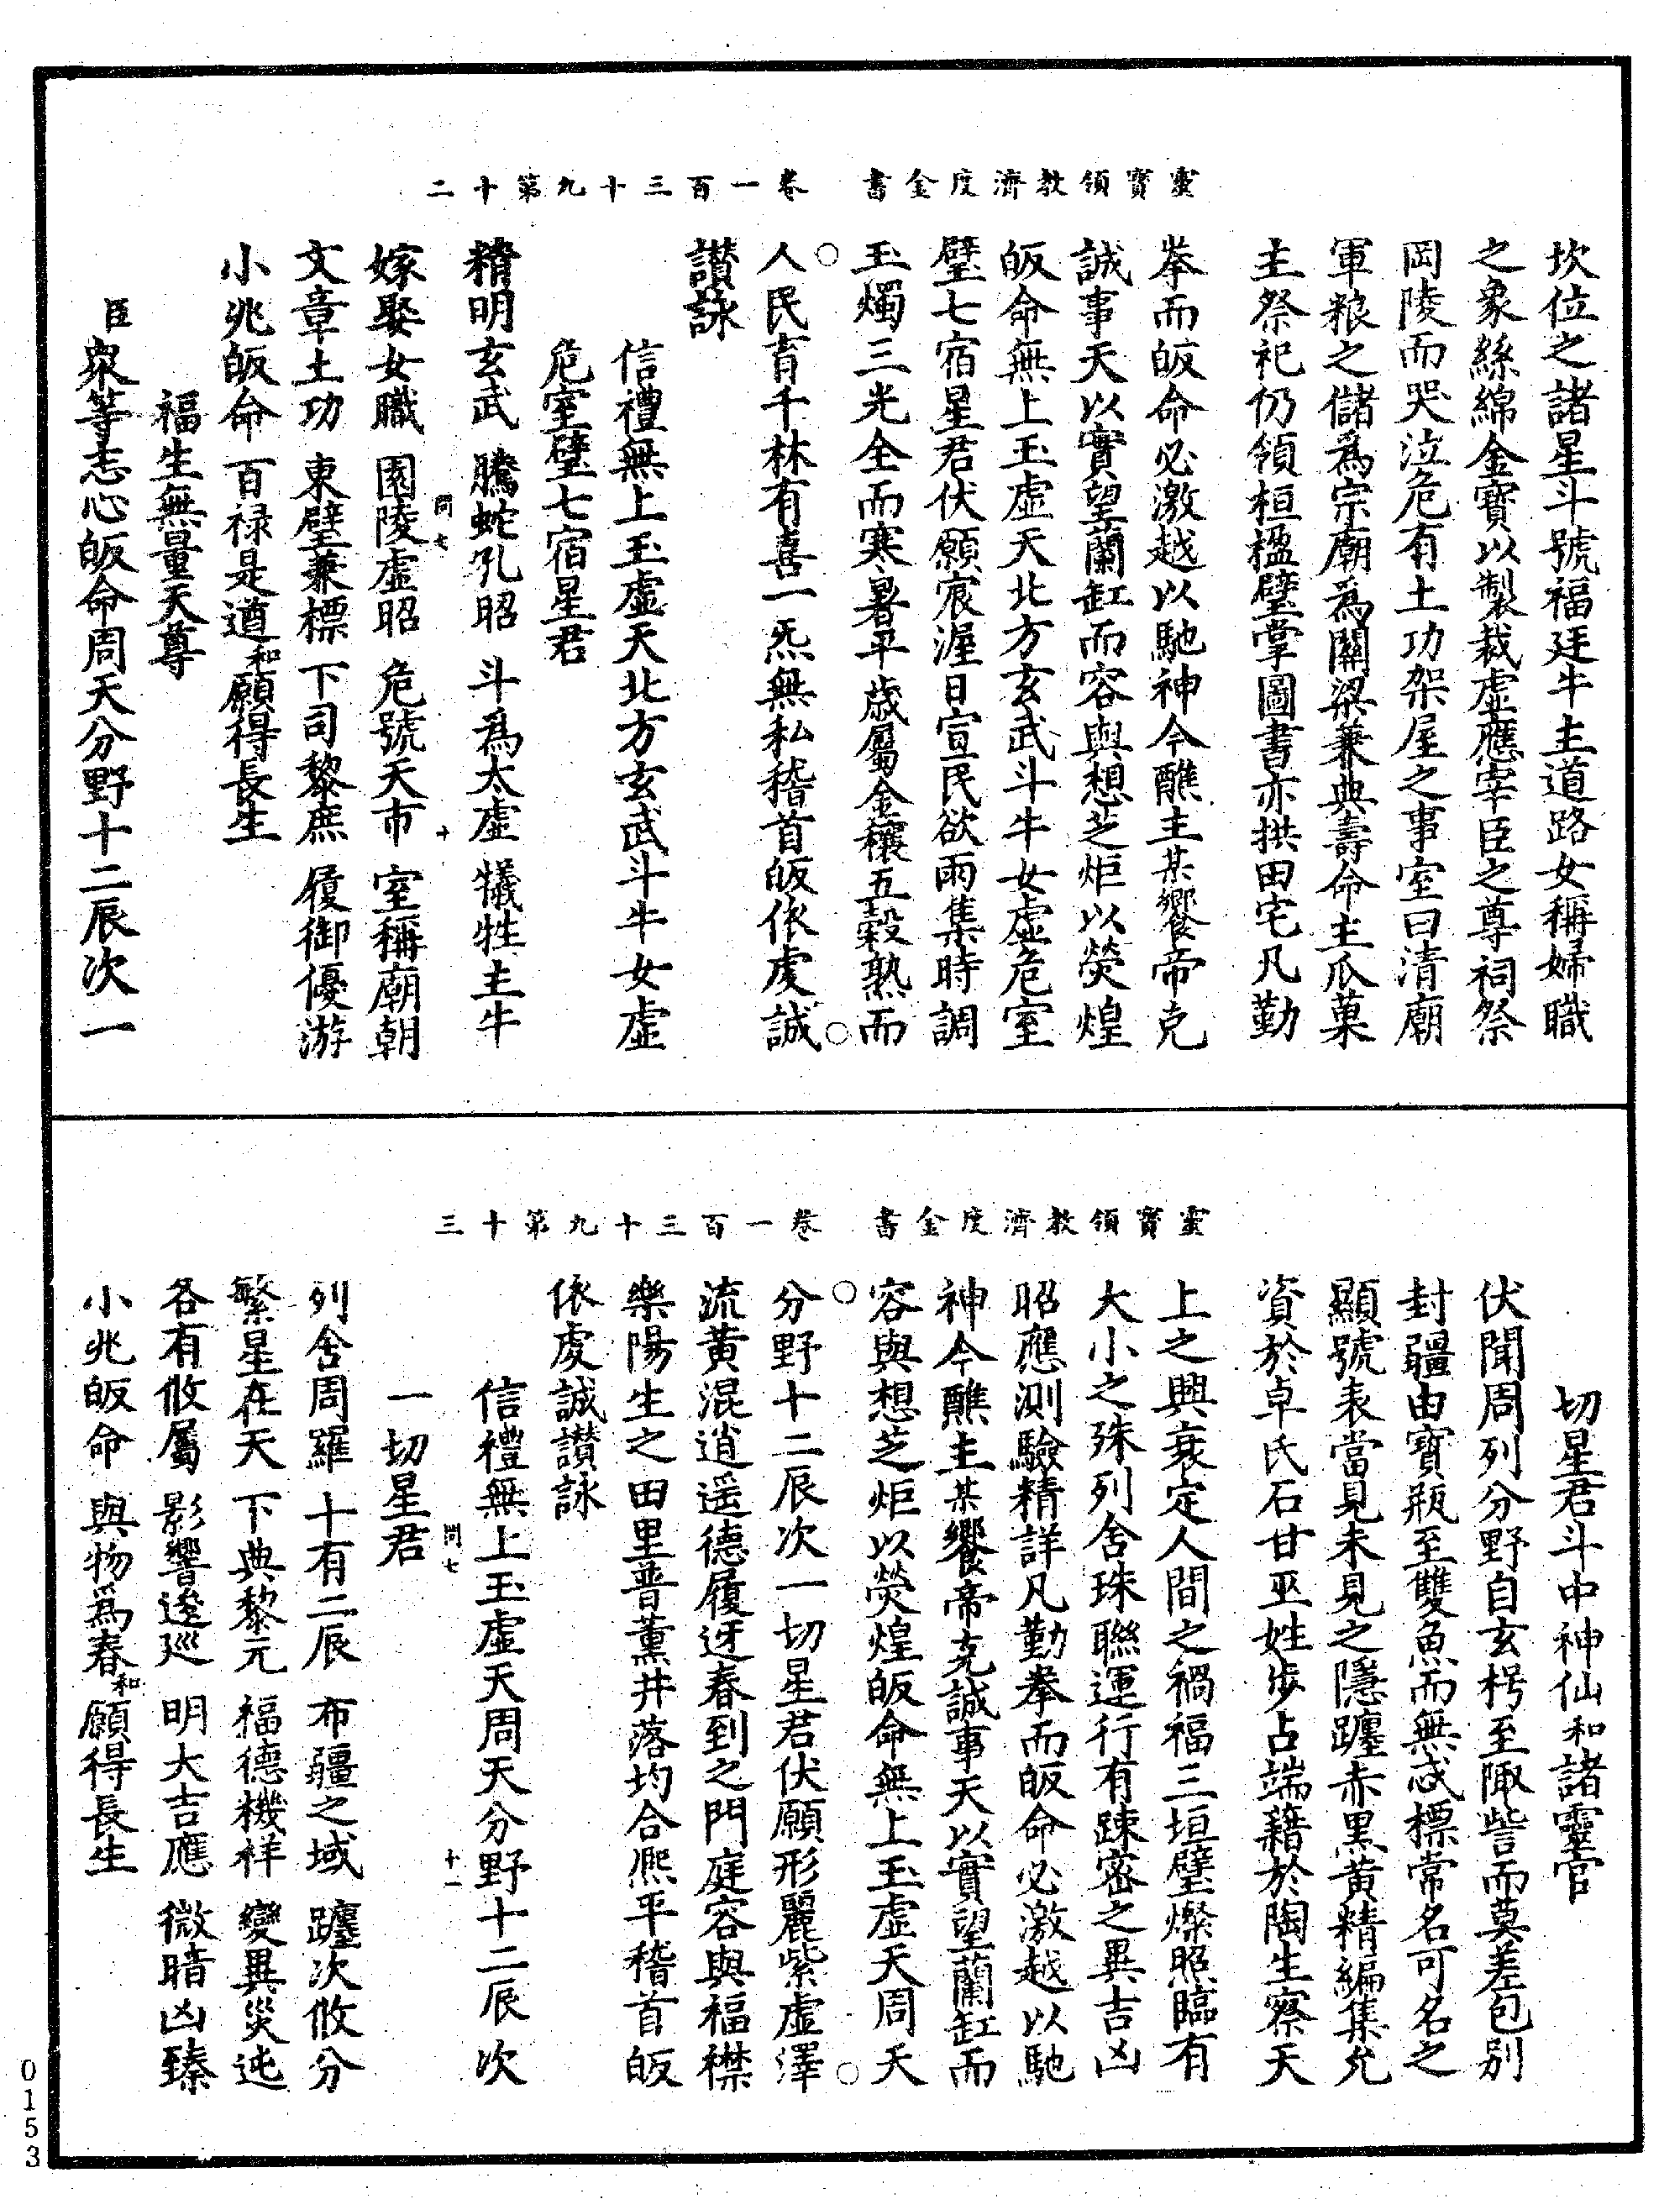 靈寶領教濟度金書　卷一百三十九第十二
坎位之諸星斗號福廷牛主道路女稱婦職
之象絲綿金寶以製裁虛應宰臣之尊祠祭
岡陵而哭泣危有土功架屋之事室曰清廟
軍粮之儲爲宗廟爲關梁兼典壽命主瓜菓
主祭祀仍領桓楹壁掌圖書亦拱田宅凡勤
拳而皈命必激越以馳神今醮主某饗帝克
誠事天以實望蘭缸而容與想芝炬以熒煌
皈命無上玉虛天北方玄武斗牛女虛危室
壁七宿星君伏願宸渥日宣民欲雨集時調
玉燭三光全而寒暑平歲屬金穰五穀熟而
人民育千林有喜一炁無私稽首皈依虔誠
讚詠
信禮無上玉虛天北方玄武斗牛女虛
危室壁七宿星君
精明玄武　騰蛇孔昭　斗爲太虛　犧牲主牛
嫁娶女職　園陵虛昭　危號天市　室稱廟朝
問七　十
文章土功　東壁兼標　下司黎庶　履御優游
小兆皈命　百禄是遒和願得長生
福生無量天尊
臣衆等志心皈命周天分野十二辰次一
靈寶領教濟度金書　卷一百三十九第十三
切星君斗中神仙和諸靈官
伏聞周列分野自玄枵至陬訾而莫差包別
封疆由寶瓶至雙魚而無忒標常名可名之
顯號表當見未見之隱躔赤黑黄精編集允
資於卓氏石甘巫姓步占端藉於陶生察天
上之興衰定人間之禍福三垣璧燦照臨有
大小之殊列舍珠聯運行有踈密之異吉凶
昭應測驗精詳凡勤拳而皈命必激越以馳
神今醮主某饗帝克誠事天以實望蘭缸而
容與想芝炬以熒煌皈命無上玉虛天周天
分野十二辰次一切星君伏願形麗紫虛澤
流黄混逍遥德履迓春到之門庭容與福襟
樂陽生之田里普薰井落均合熙平稽首皈
依虔誠讚詠
信禮無上玉虛天周天分野十二辰次
問七　十一
一切星君
列舍周羅　十有二辰　布疆之域　躔次攸分
繁星在天　下典黎元　福德機祥　變異災迍
各有攸屬　影響逡巡　明大吉應　微暗凶臻
小兆皈命　與物爲春和願得長生
0153